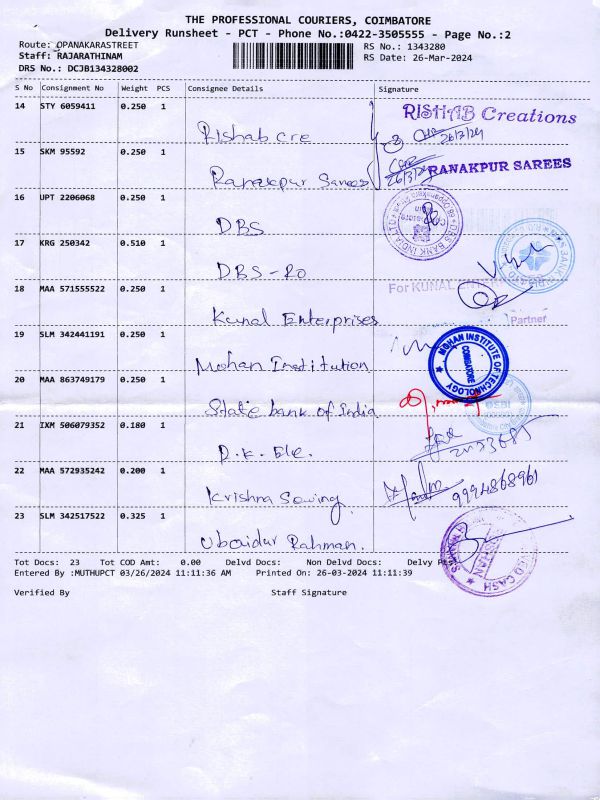 THE PROFESSIONAL COURIERS, COIMBATORE
Delivery Runsheet - PCT - Phone No.:0422-3505555 - Page No.:2
Route: OPANAKARASTREET
Staff: RAJARATHINAM
DRS No.: DCJB134328002
RS No.: 1343280
RS Date: 26-Mar-2024
S No Consignment No Weight PCS Consignee Details Signature
14 STY 6059411 0.250 1
Rishab cre
RISHAB Creations
26/3/24
15 SKM 95592 0.250 1
Ranakpur Sarees
26/3/24
RANAKPUR SAREES
16 UPT 2206068 0.250 1
DBS
DBS BANK INDIA LTD
17 KRG 250342 0.510 1
DBS-RO
18 MAA 571555522 0.250 1
Kunal Enterprises
For KUNAL
Partner
19 SLM 342441191 0.250 1
Mohan Institution
MOHAN INSTITUTE OF TECHNOLOGY
COIMBATORE
20 MAA 863749179 0.250 1
State bank of India
21 IXM 506079352 0.180 1
D.K. Ele.
22 MAA 572935242 0.200 1
Krishna Sewing
9994868961
23 SLM 342517522 0.325 1
Ubaidur Rahman.
CASH
Tot Docs: 23 Tot COD Amt: 0.00 Delvd Docs: Non Delvd Docs: Delvy
Entered By :MUTHUPCT 03/26/2024 11:11:36 AM Printed On: 26-03-2024 11:11:39
Verified By Staff Signature